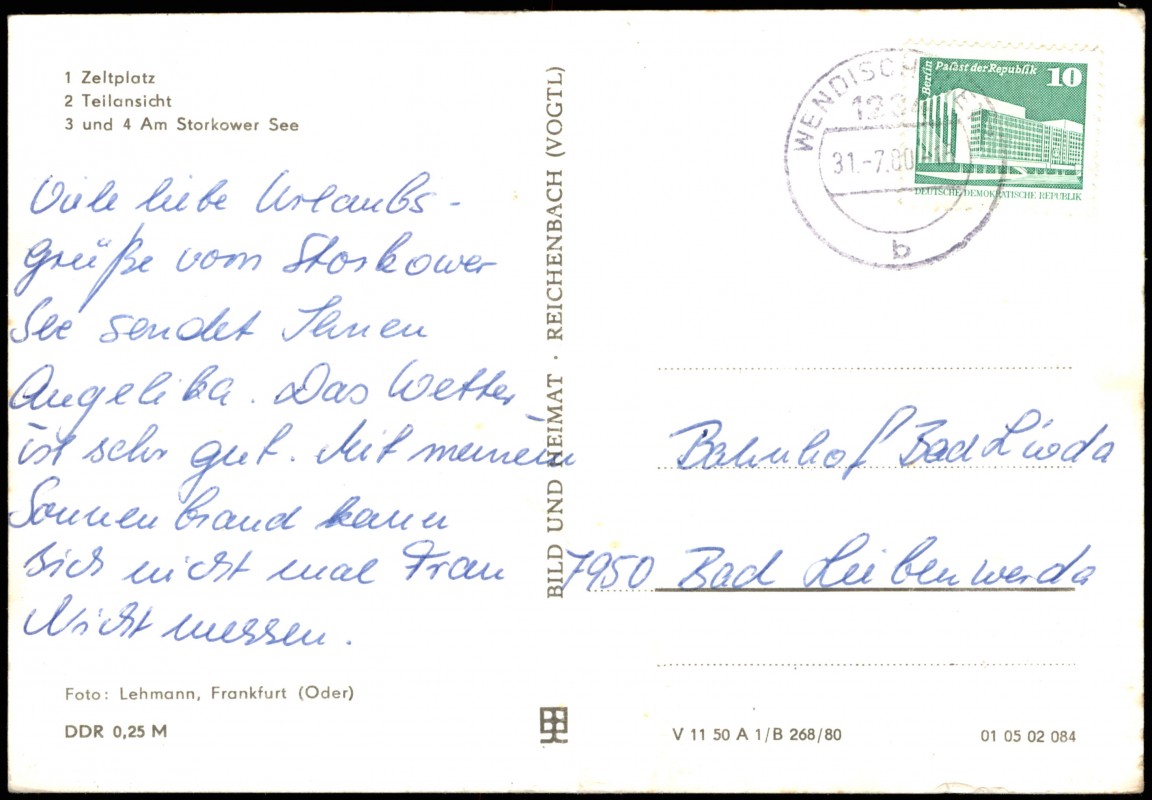 1 Zeltplatz
2 Teilansicht
3 und 4 Am Storkower See
Viele liebe Urlaubs-
grüße vom Storkower
See sendet Ihnen
Angelika. Das Wetter
ist sehr gut. Mit meinem
Sonnenbrand kann
sich nicht mal Frau
Nicht messen.
Foto: Lehmann, Frankfurt (Oder)
DDR 0,25 M
BILD UND HEIMAT · REICHENBACH (VOGTL)
WENDISCH
31.-7.80
b
Berlin Palast der Republik 10
DEUTSCHE DEMOKRATISCHE REPUBLIK
Bahnhof Bad
7950 Bad Liebenwerda
V 11 50 A 1/B 268/80
01 05 02 084